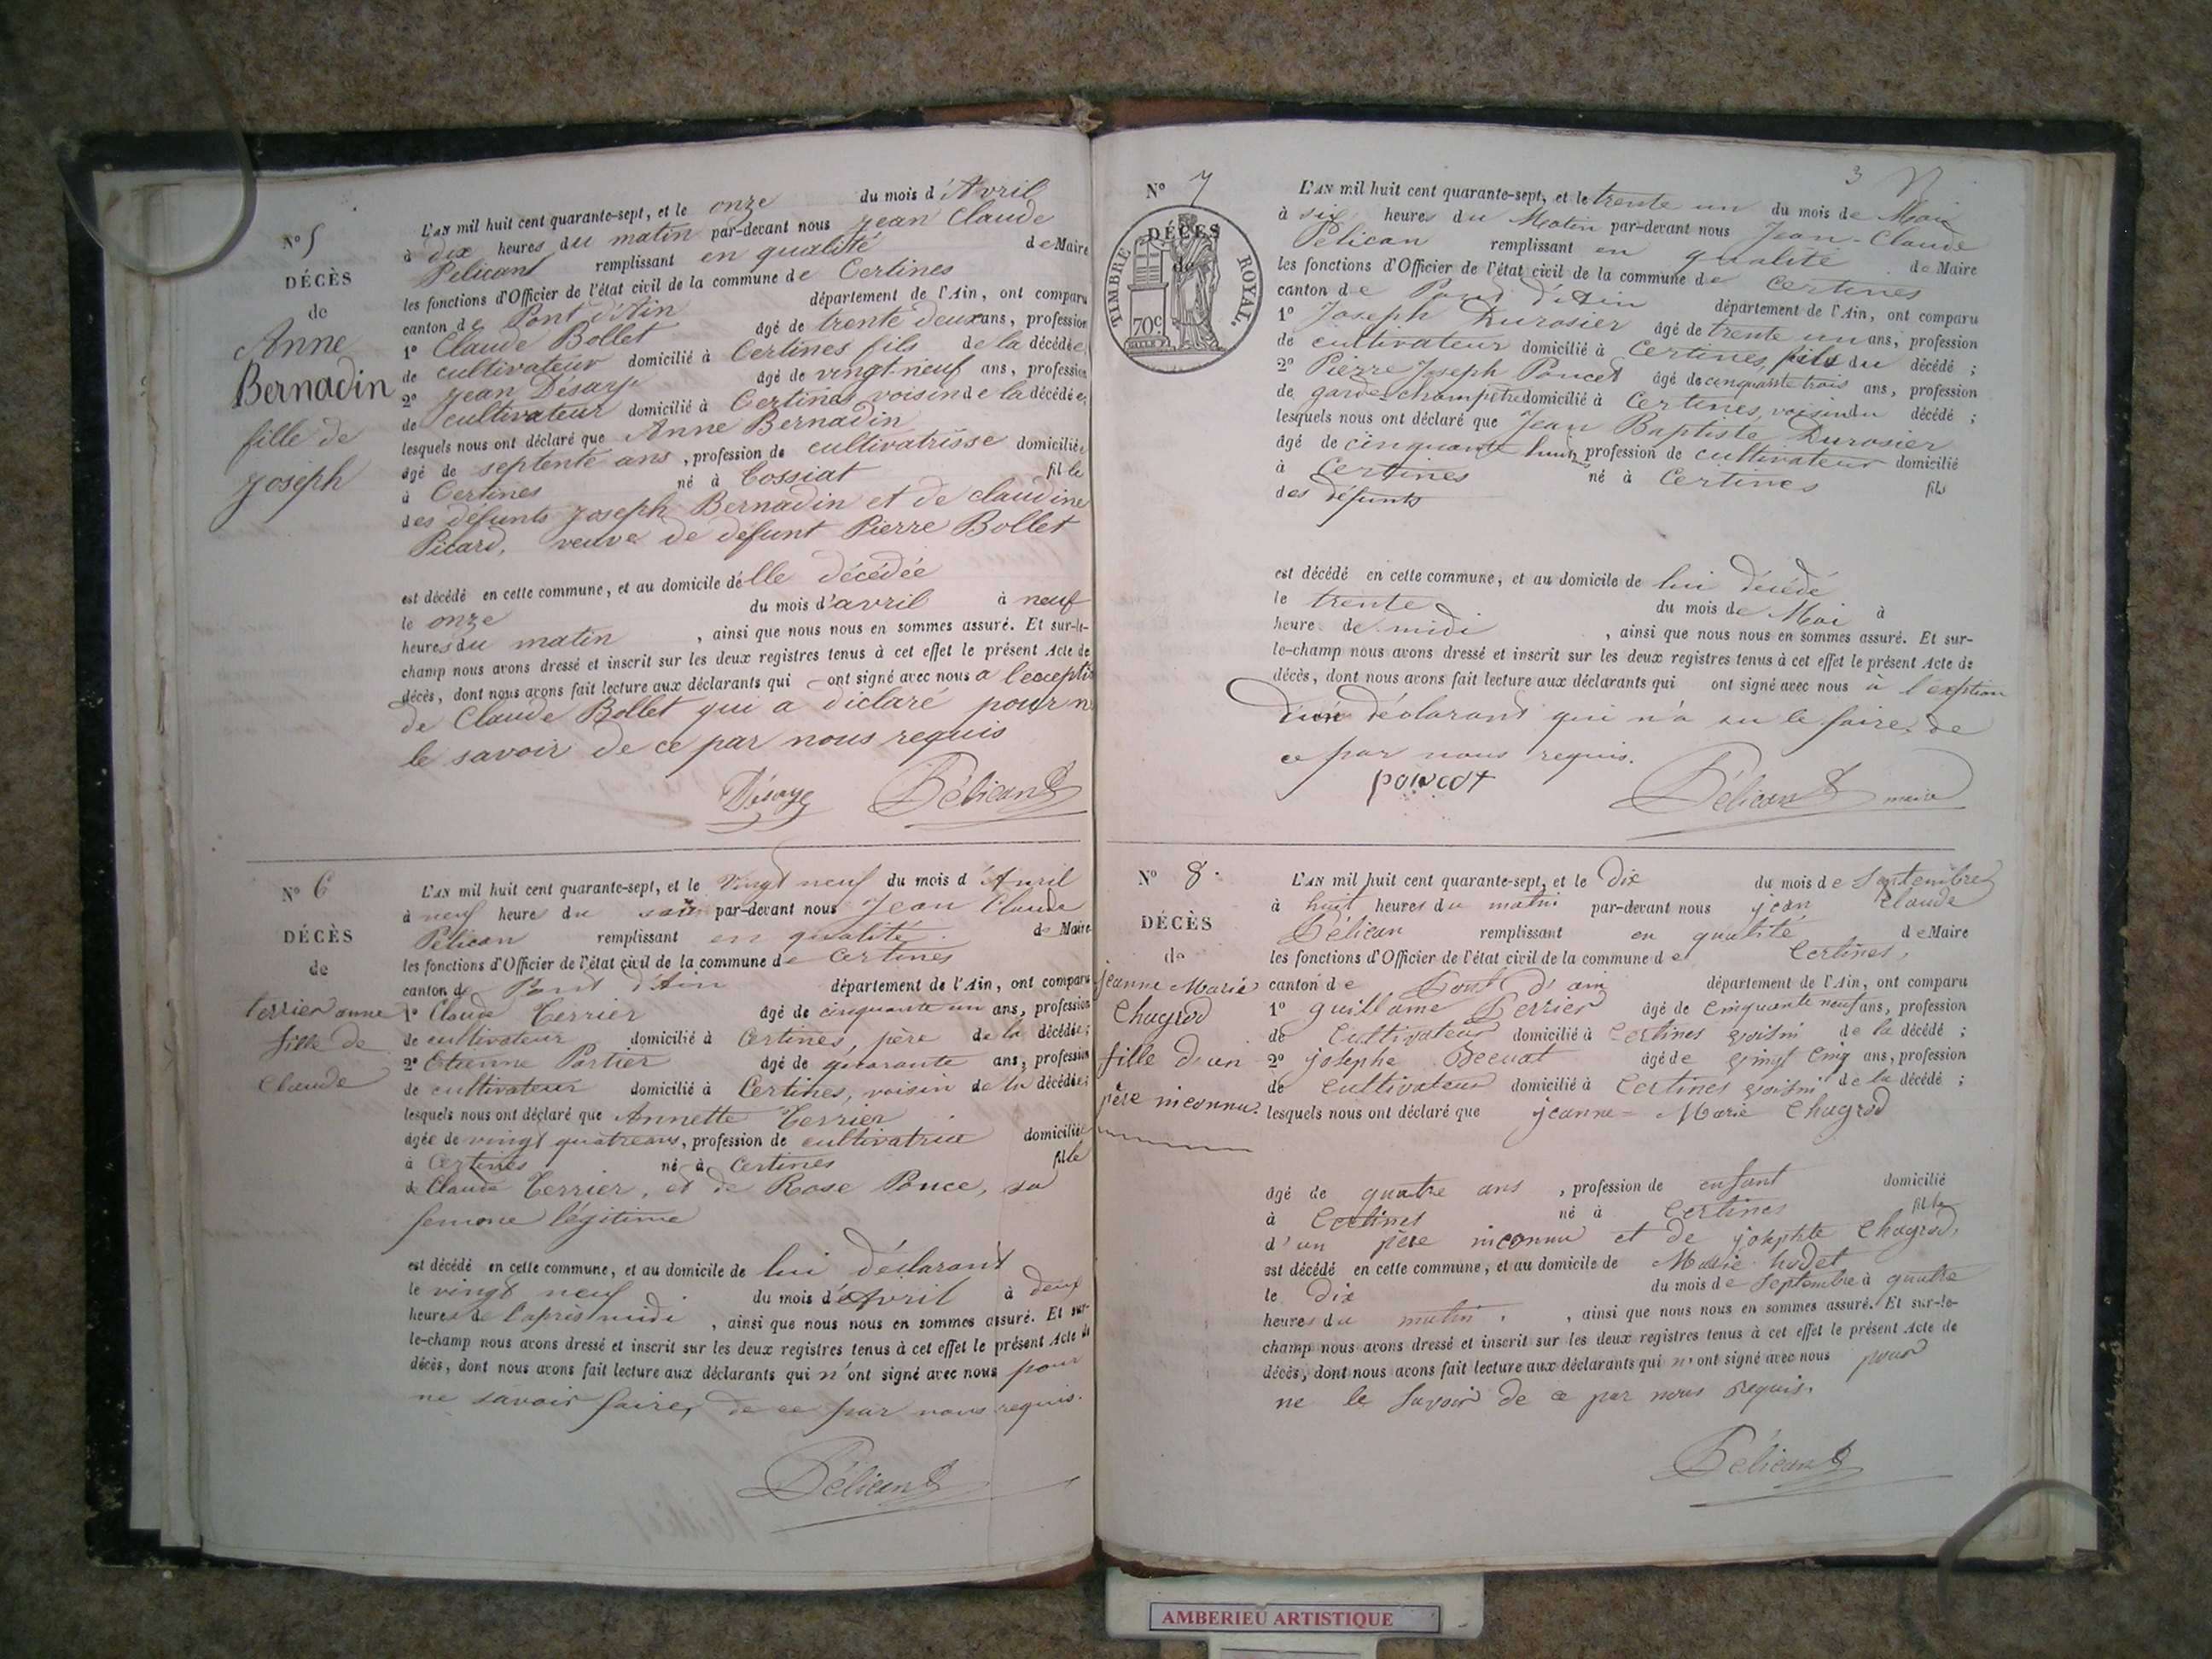 N° 5
DÉCÈS
de
Anne
Bernadin
fille de
joseph
L'AN mil huit cent quarante-sept, et le onze du mois d'Avril
à dix heures du matin par-devant nous jean Claude
Pelicant remplissant en qualitté de Maire
les fonctions d'Officier de l'état civil de la commune de Certines
canton de Pont d'Ain département de l'Ain, ont comparu
1° Claude Bollet âgé de trente deux ans, profession
de cultivateur domicilié à Certines fils de la décédée
2° jean Désaye âgé de vingt-neuf ans, profession
de cultivateur domicilié à Certines voisin de la décédée;
lesquels nous ont déclaré que Anne Bernadin
âgé de septente ans, profession de cultivatrisse domiciliée
à Certines né à Tossiat fille
des défunts joseph Bernadin et de claudine
Picard, veuve de défunt Pierre Bollet
est décédé en cette commune, et au domicile délle décédée
le onze du mois d'avril à neuf
heures du matin, ainsi que nous nous en sommes assuré. Et sur-le-
champ nous avons dressé et inscrit sur les deux registres tenus à cet effet le présent Acte de
décès, dont nous avons fait lecture aux déclarants qui ont signé avec nous a l'exceptio
de Claude Bollet qui a diclaré pour n
le savoir de ce par nous requis
Désaye Pélicand
N° 6
DÉCÈS
de
terrier anne
fille de
Claude
L'AN mil huit cent quarante-sept, et le vingt neuf du mois d'Avril
à neuf heures du soir par-devant nous Jean Claude
Pélican remplissant en qualité de Maire
les fonctions d'Officier de l'état civil de la commune de Certines
canton de Pont d'Ain département de l'Ain, ont comparu
1° Claude Terrier âgé de cinquante un ans, profession
de cultivateur domicilié à Certines, père de la décédée;
2° Etienne Portier âgé de quarante ans, profession
de cultivateur domicilié à Certines, voisin de la décédée;
lesquels nous ont déclaré que Annette Terrier
âgée de vingt quatre ans, profession de cultivatrice domiciliée
à Certines né à Certines fille
de Claude Terrier, et de Rose Ponce, sa
femme légitime
est décédé en cette commune, et au domicile de lui déclarant
le vingt neuf du mois d'Avril à deux
heures de l'après midi, ainsi que nous nous en sommes assuré. Et sur-
le-champ nous avons dressé et inscrit sur les deux registres tenus à cet effet le présent Acte de
décès, dont nous avons fait lecture aux déclarants qui n'ont signé avec nous pour
ne savoir faire, de ce par nous requis.
Pélicand
3
N° 7
DÉCÈS
de
TIMBRE ROYAL.
70c.
L'AN mil huit cent quarante-sept, et le trente un du mois de Mai
à six heures du Matin par-devant nous Jean-Claude
Pélican remplissant en qualité de Maire
les fonctions d'Officier de l'état civil de la commune de Certines
canton de Pont d'Ain département de l'Ain, ont comparu
1° Joseph Durosier âgé de trente un ans, profession
de cultivateur domicilié à Certines, fils du décédé;
2° Pierre Joseph Poncet âgé de cinquante trois ans, profession
de garde-champêtre domicilié à Certines, voisin du décédé;
lesquels nous ont déclaré que Jean Baptiste Durosier
âgé de cinquante huit, profession de cultivateur domicilié
à Certines né à Certines fils
des défunts
est décédé en cette commune, et au domicile de lui décédé
le trente du mois de Mai à
heure de midi, ainsi que nous nous en sommes assuré. Et sur-
le-champ nous avons dressé et inscrit sur les deux registres tenus à cet effet le présent Acte de
décès, dont nous avons fait lecture aux déclarants qui ont signé avec nous à l'exption
d'un déclarant qui n'a su le faire, de
ce par nous requis.
poncet Pélicand maire
N° 8.
DÉCÈS
de
jeanne Marie
Chagrod
fille d'un
père inconnu.
L'AN mil huit cent quarante-sept, et le Dix du mois de Septembre
à huit heures du matin par-devant nous jean Claude
Pélican remplissant en qualité de Maire
les fonctions d'Officier de l'état civil de la commune de Certines,
canton de Pont d'ain département de l'Ain, ont comparu
1° guillaume Perrier âgé de Cinquante neuf ans, profession
de Cultivateur domicilié à Certines voisin de la décédé;
2° josephe âgé de vingt Cinq ans, profession
de Cultivateur domicilié à Certines voisin de la décédé;
lesquels nous ont déclaré que jeanne-Marie Chagrod
âgé de quatre ans, profession de enfant domicilié
à Certines né à Certines fille
d'un père inconnu et de josephte Chagrod,
est décédé en cette commune, et au domicile de Marie hodet
le Dix du mois de Septembre à quatre
heures du matin, ainsi que nous nous en sommes assuré. Et sur-le-
champ nous avons dressé et inscrit sur les deux registres tenus à cet effet le présent Acte de
décès, dont nous avons fait lecture aux déclarants qui n'ont signé avec nous pour
ne le Savoir de ce par nous Requis.
Pélicand
AMBERIEU ARTISTIQUE